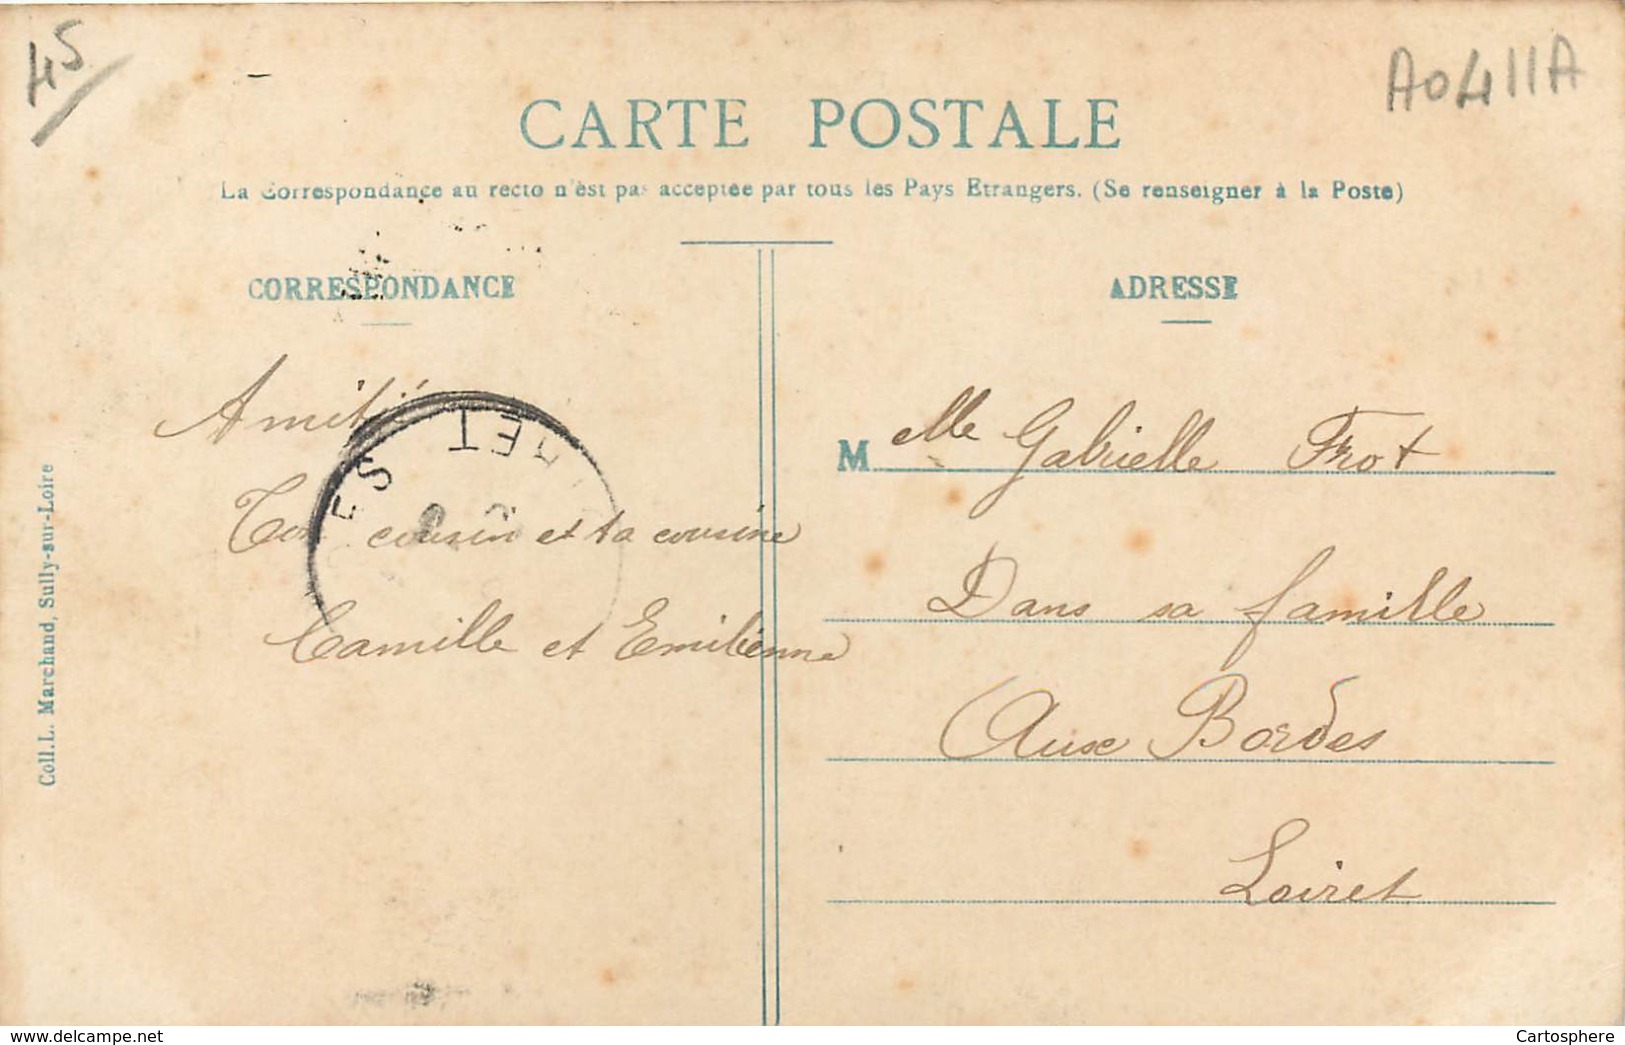 45
A0411A
CARTE POSTALE
La Correspondance au recto n'est pas acceptée par tous les Pays Etrangers. (Se renseigner à la Poste)
CORRESPONDANCE
Amitié
Ton cousin et ta cousine
Camille et Emilienne
ADRESSE
Melle Gabrielle Frot
Dans sa famille
Aux Bordes
Loiret
Coll. L. Marchand, Sully-sur-Loire
ES
ET
www.delcampe.net
Cartosphere